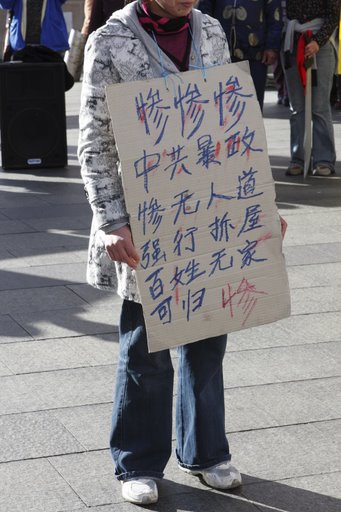 惨惨惨
中共暴政
惨无人道
强行拆屋
百姓无家
可归 惨